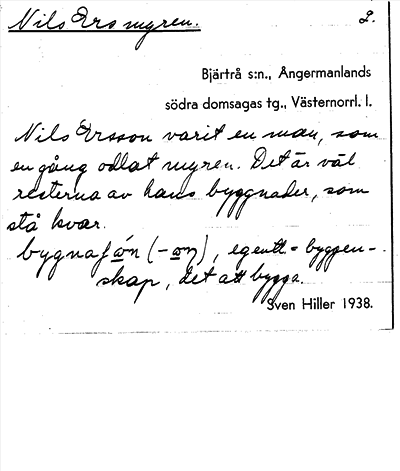 Nils Ers myren. 2.
Bjärtrå s:n., Ångermanlands
södra domsagas tg., Västernorrl. l.
Nils Ersson varit en man, som
en gång odlat myren. Det är väl
resterna av hans byggnader, som
stå kvar.
(-əŋ), egentl. = byggen-
skap, det att bygga.
Sven Hiller 1938.